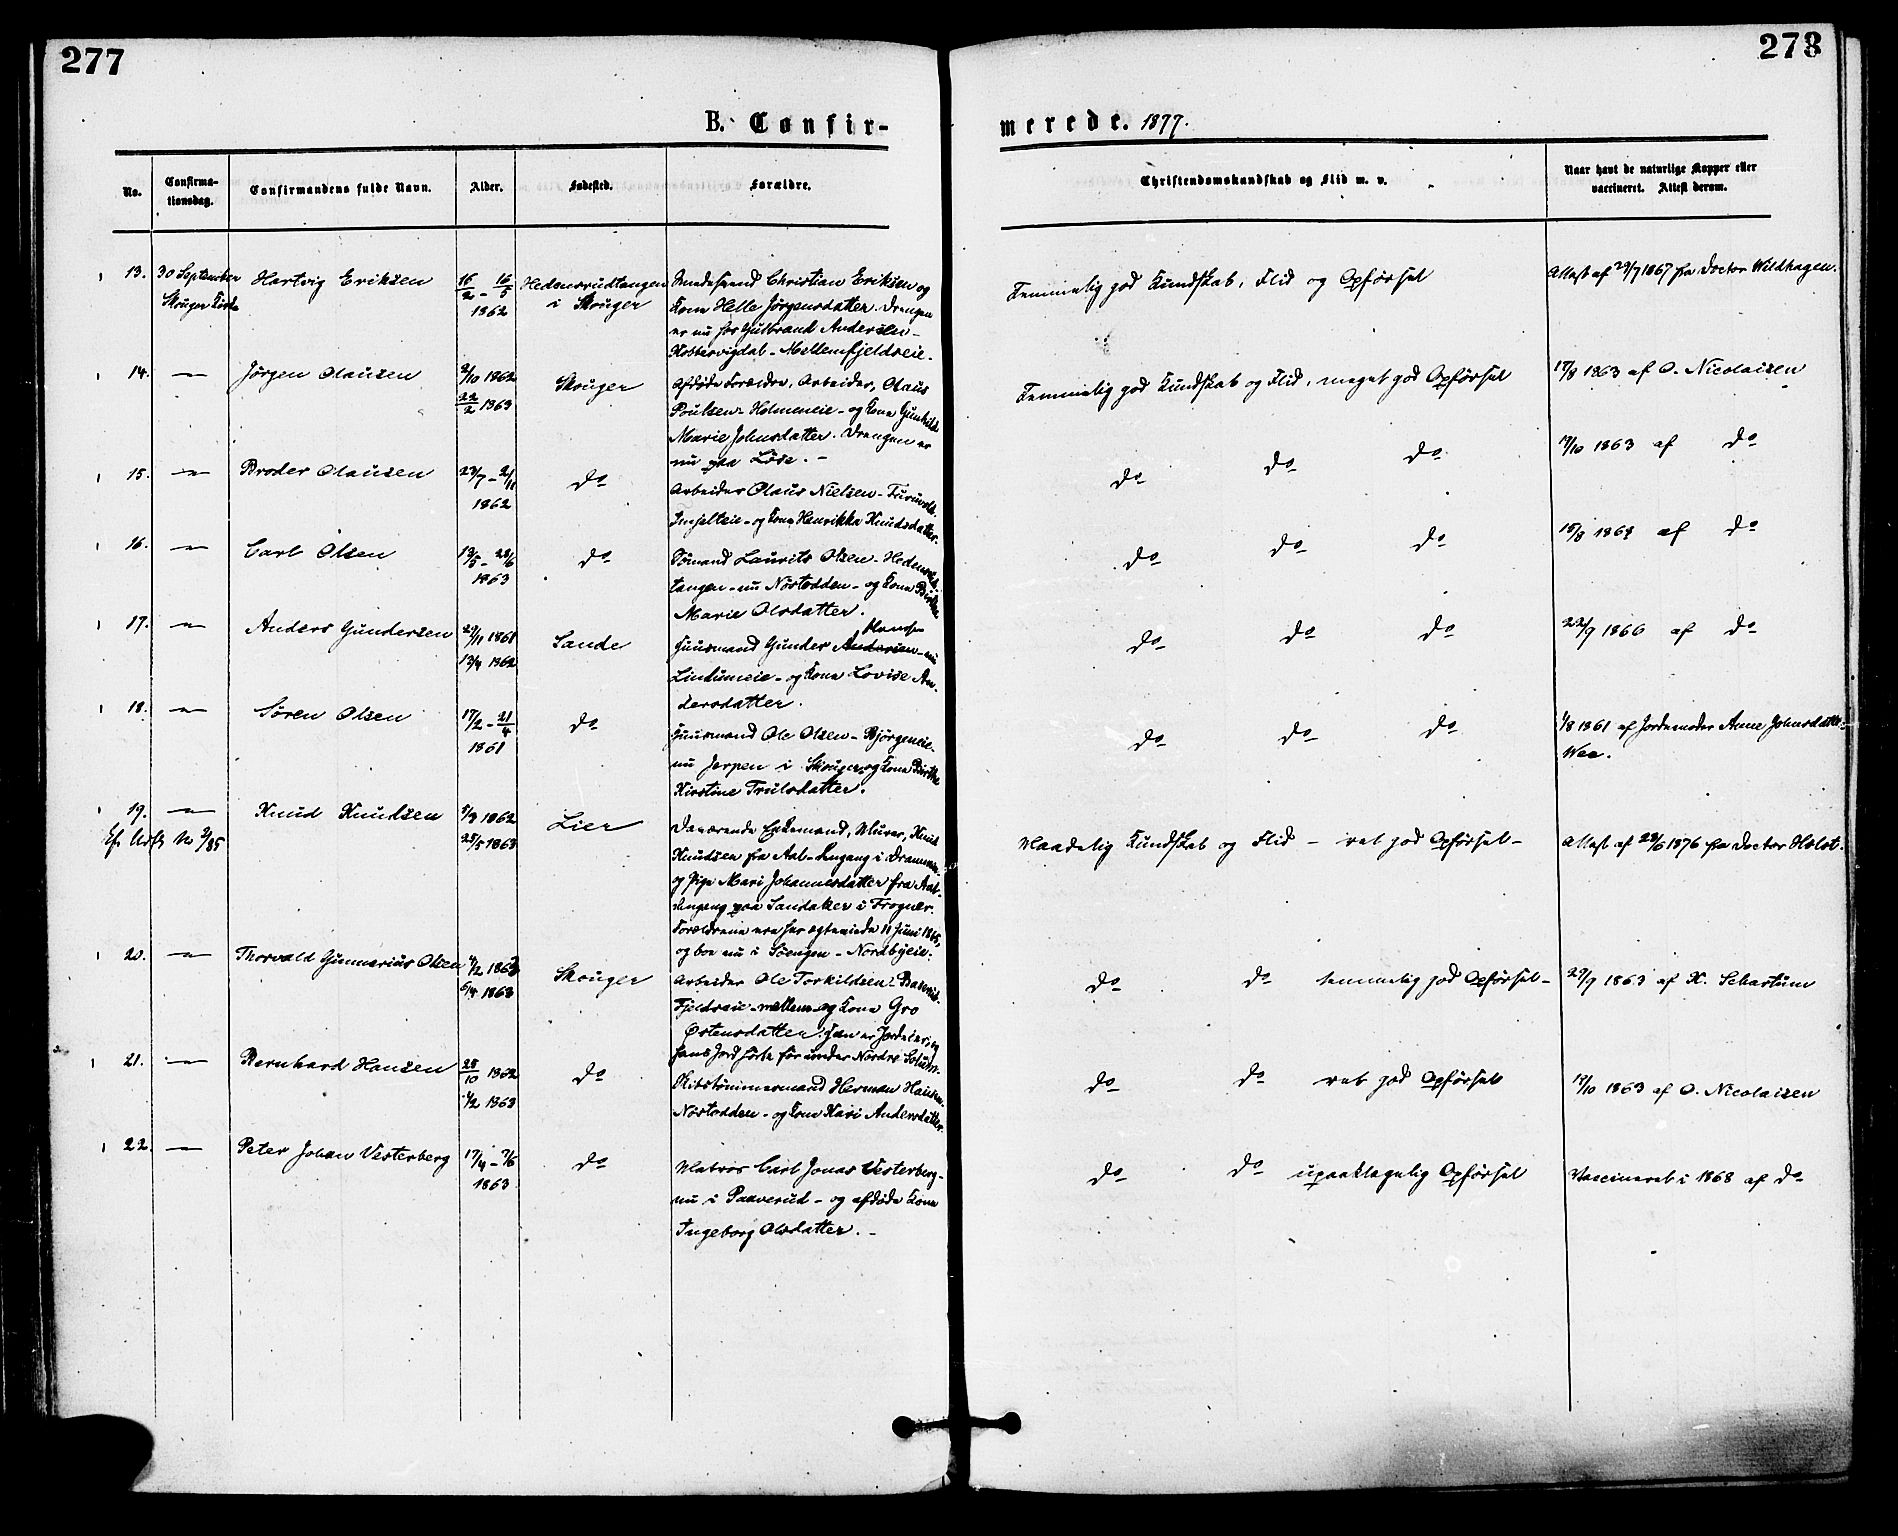 277
278
B. Confir-
merede. 1877.
No.
Confirma-
tionsdag.
Confirmandens fulde Navn.
Alder.
Fødested.
Forældre.
Christendomskundskab og Flid m. v.
Naar havt de naturlige Kopper eller
vaccineret. Attest derom.
13. 30 September Hartvig Eriksen
Skouger Kirke
16/2 - 16/3
1862
Hedensrudtangen
i Skouger
Christian Eriksen og
Kone Helle Jørgensdatter. Drengen
er nu hos Gulbrand Andersen -
Kobbervigdal - Mellemfjeldseie.
Temmelig god Kundskab, Flid og Opførsel
Attest af 23/7 1867 fra Doctor Wildhagen.
14. Jørgen Olausen
2/10 1862
22/2 1863
Skouger
Afdøde Forældre, Arbeider, Olaus
Poulsen - Holmeneie - og Kone Gunhilde
Marie Johnsdatter. Drengen er
nu paa Løse. -
Temmelig god Kundskab og Flid, meget god Opførsel
17/8 1863 af O. Nicolaisen
15. Broder Olausen
23/7 - 2/11
1862
do
Arbeider Olaus Nielsen -
og Kone Henrikka Knudsdatter.
do do do
17/10 1863 af do
16. Carl Olsen
13/3 - 28/6
1863
do
Sømand Laurits Olsen -
tangen - nu Nøstodden - og Kone
Marie Olsdatter.
do do do
15/8 1868 af do
17. Anders Gundersen
29/11 1861
13/4 1862
Sande
Hansen
Huusmand Gunder Andersen - nu
Lindumeie - og Kone Lovise An-
dersdatter.
do do do
22/9 1866 af do
18. Søren Olsen
17/2 - 21/4
1861
do
Huusmand Ole Olsen - Bjørgeneie -
nu Jerpen i Skouger, og Kone Birthe
Kirstine Trulsdatter.
do do do
1/8 1861 af Jordemoder Anne Johnsdatter -
Wee.
19. Knud Knudsen
1/3 1862
25/5 1863
Lier
Daværende Enkemand, Murer, Knud
Knudsen fra Aal - Engang i Drammen,
og Pige Mari Johannesdatter fra Aal -
paa Sandaker i Frogner.
Forældrene ere her ægteviede 11 Juni 1865,
og boe nu i Søengen - Nordbyeie.
Maadelig Kundskab og Flid - ret god Opførsel -
Attest af 28/6 1876 fra Doctor Holst.
20. Thorvald Gunnerius Olsen
4/2 1863
6/4 1863
Skouger
Arbeider Ole Torkildsen -
Fjeldseie - mellem - og Kone Gro
Østensdatter. Han er Jordeier, og
hans Jord hørte før under Nordre Solum.
do do temmelig god Opførsel -
29/9 1863 af K. Schartum
21. Bernhard Hansen
28/10 1862
1/2 1863
do
Skibstømmermand Herman Hansen -
Nøstodden - og Kone Kari Andersdatter.
do do ret god Opførsel
17/10 1863 af O. Nicolaisen
22. Peter Johan Vesterberg
17/4 - 7/6
1863
do
Matros Carl Jonas Vesterberg -
nu i Paaverud - og afdøde Kone
Ingeborg Olsdatter. -
do do upaaklagelig Opførsel
Vaccineret i 1868 af do